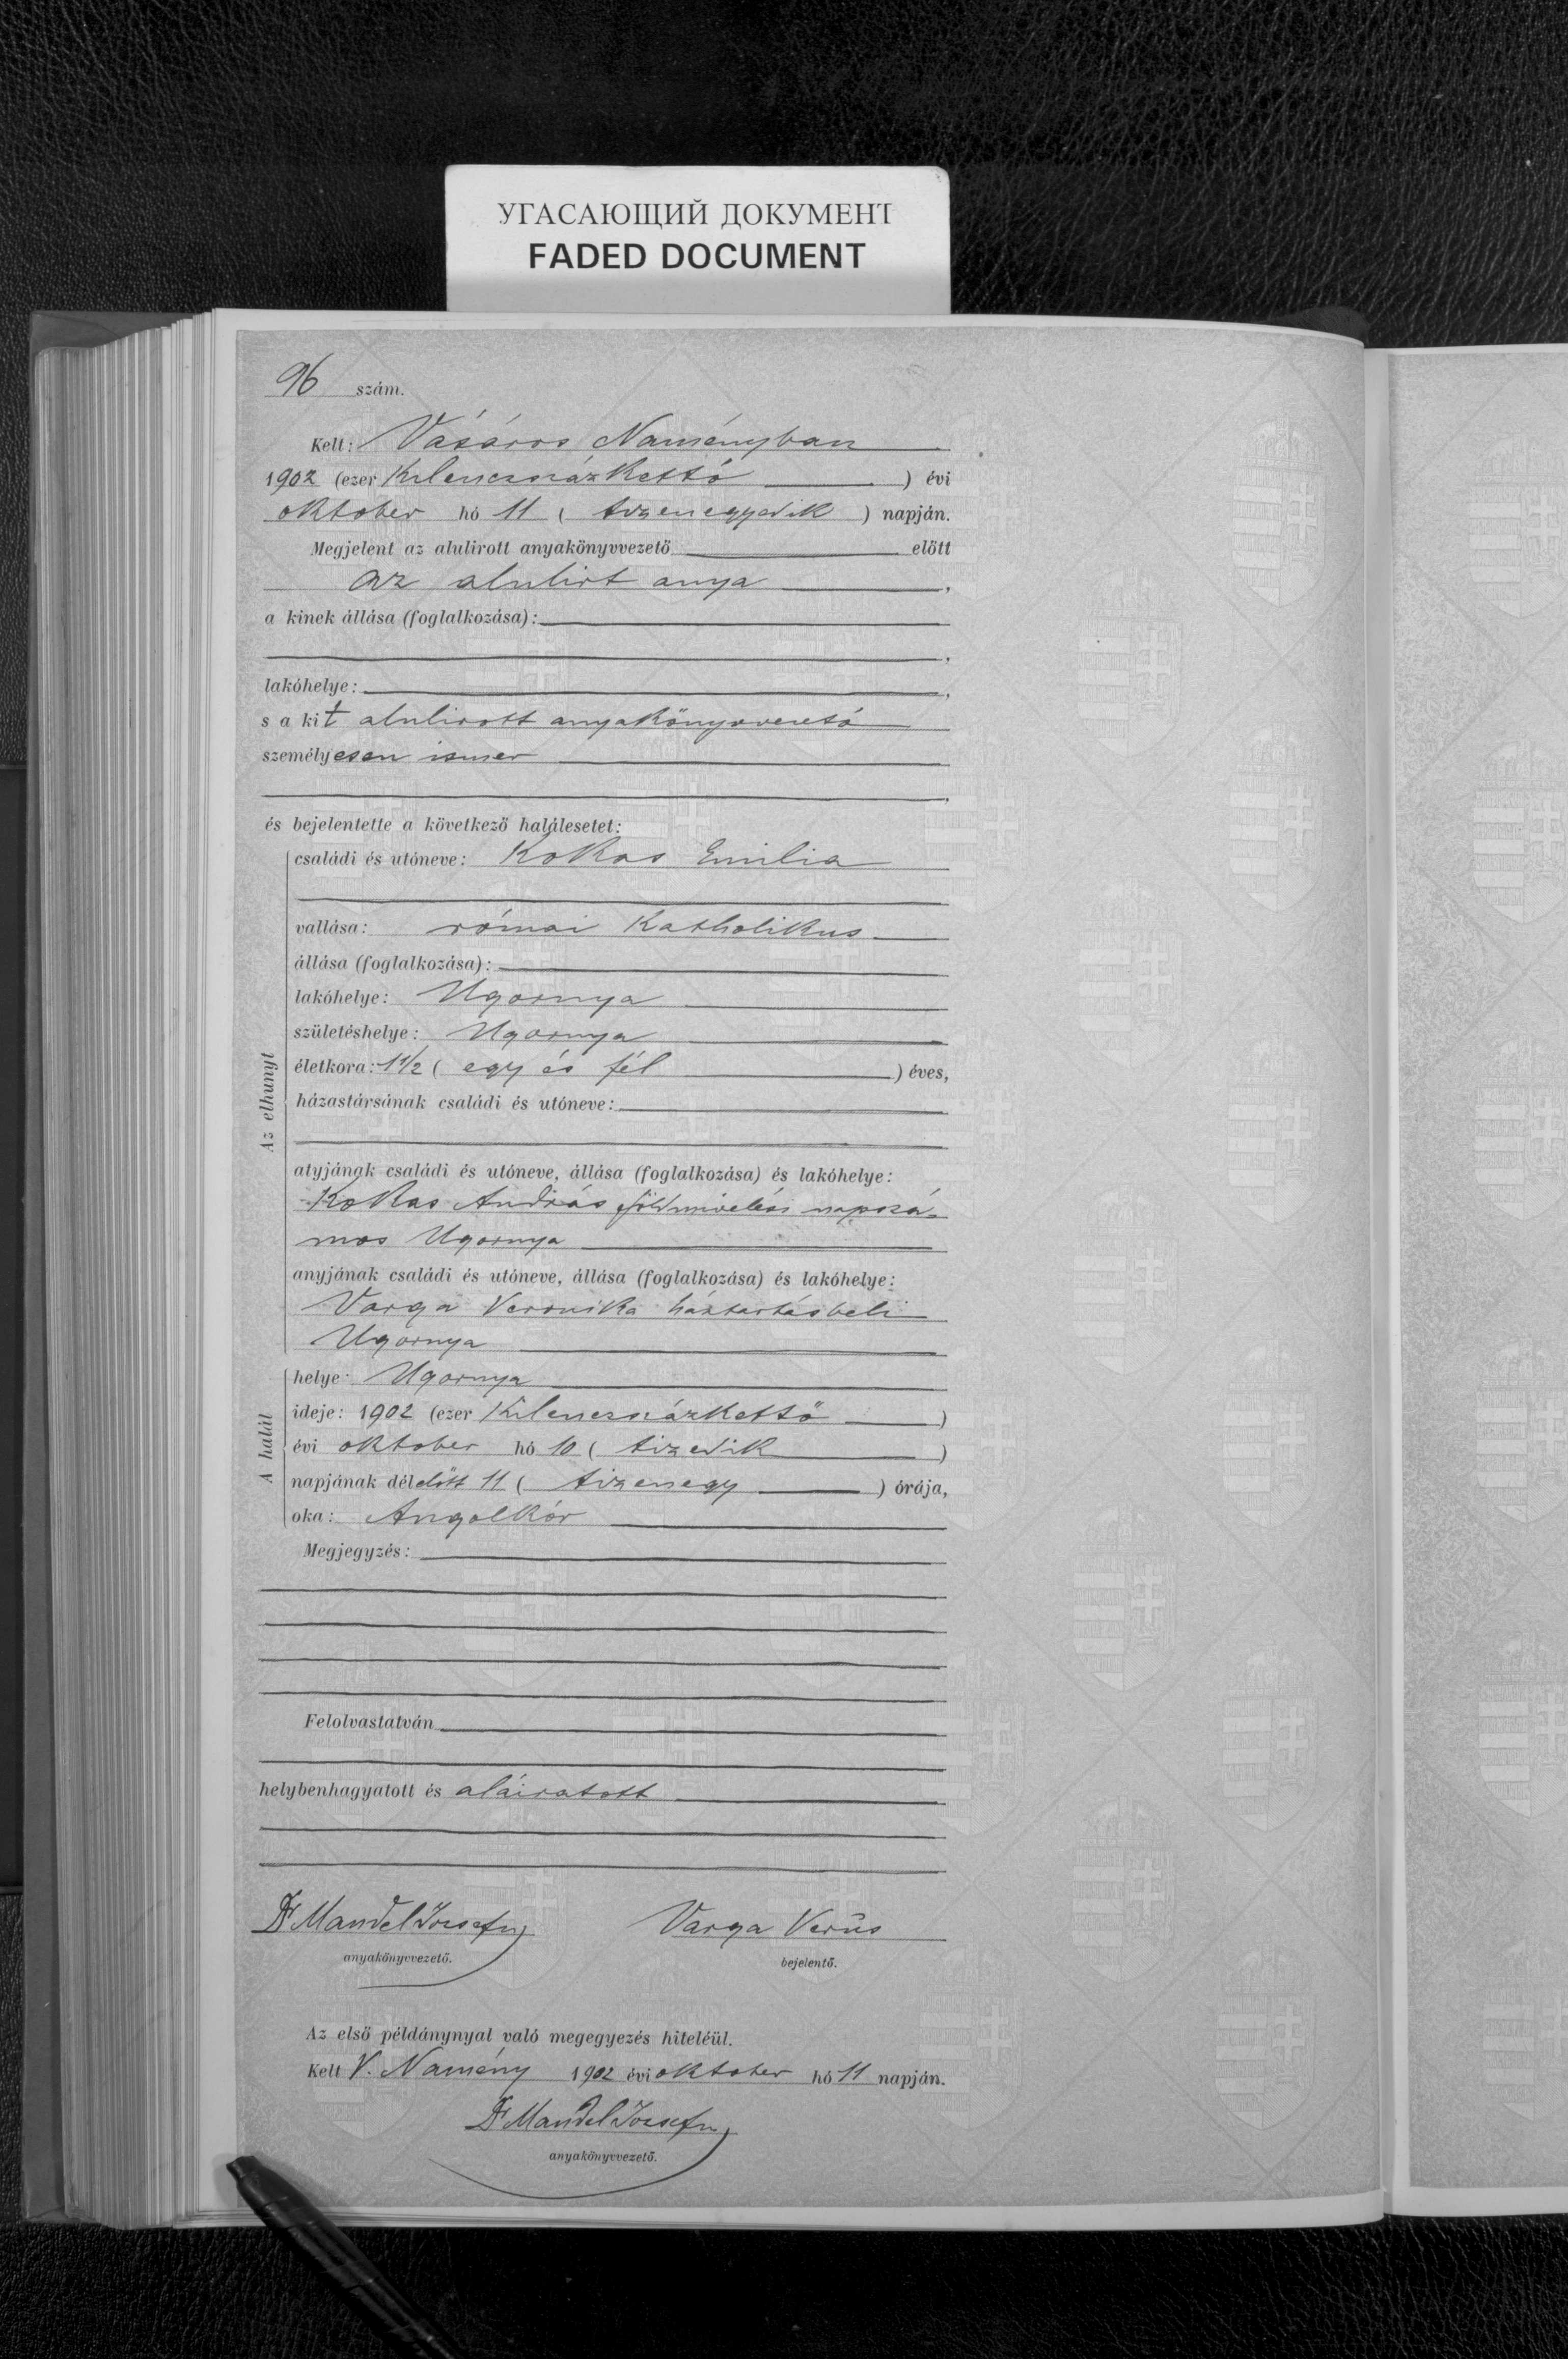 УГАСАЮЩИЙ ДОКУМЕНТ
FADED DOCUMENT
96 szám.
Kelt: Vásáros Naményban
1902 (ezer kilenczszázkettő) évi
oktober hó 11 (tizenegyedik) napján.
Megjelent az alulirott anyakönyvvezető előtt
az alulirt anya,
a kinek állása (foglalkozása):
,
lakóhelye: ,
s a kit alulirott anyakönyvvezető
személyesen ismer
,
és bejelentette a következő halálesetet:
Az elhunyt
családi és utóneve: Kokas Emilia
vallása: római katholikus
állása (foglalkozása):
lakóhelye: Ugornya
születéshelye: Ugornya
életkora: 1 1/2 (egy és fél) éves,
házastársának családi és utóneve:
atyjának családi és utóneve, állása (foglalkozása) és lakóhelye:
Kokas András földmivelési napszá-
mos Ugornya
anyjának családi és utóneve, állása (foglalkozása) és lakóhelye:
Varga Veronika háztartásbeli
Ugornya
A halál
helye: Ugornya
ideje: 1902 (ezer kilenczszázkettő)
évi oktober hó 10 (tizedik)
napjának délelőtt 11 (tizenegy) órája,
oka: Angolkór
Megjegyzés:
Felolvastatván
helybenhagyatott és aláiratott
Dr Mandel József Varga Verus
anyakönyvvezető. bejelentő.
Az első példánynyal való megegyezés hiteléül.
Kelt V. Namény 1902 évi oktober hó 11 napján.
Dr Mandel József
anyakönyvvezető.